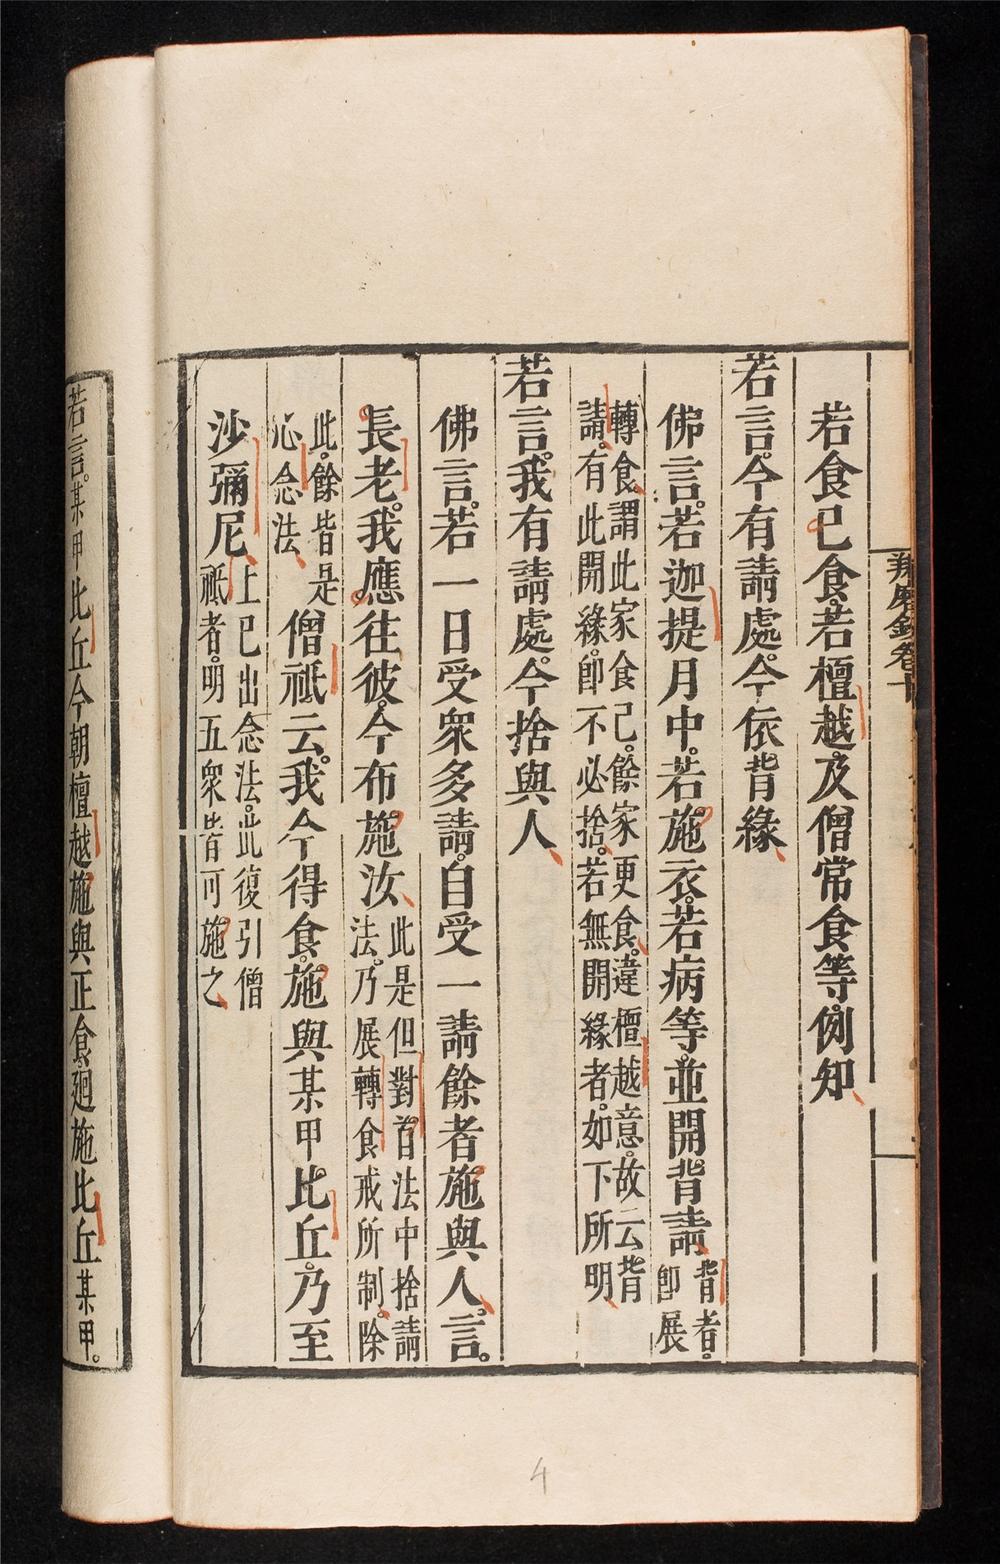 羯磨鈔卷十
若食已食。若檀越。及僧常食等。例知、
若言。今有請處。今依背緣、
佛言。若迦提月中。若施衣。若病等。並開背請、背者。
即展
轉食。謂此家食已。餘家更食。違檀越意。故云背
請。有此開緣。即不必捨。若無開緣者。如下所明、
若言。我有請處。今捨與人、
佛言。若一日受眾多請。自受一請。餘者施與人。言。
長老。我應往彼。今布施汝、此是但對首法中捨請
法。乃展轉食戒所制。除
此。餘皆是
心念法、僧祇云。我今得食。施與某甲比丘。乃至
沙彌尼、上已出念法。此復引僧
祇者。明五眾皆可施之、
若言。某甲比丘。今朝檀越施與正食。廻施比丘某甲。
4